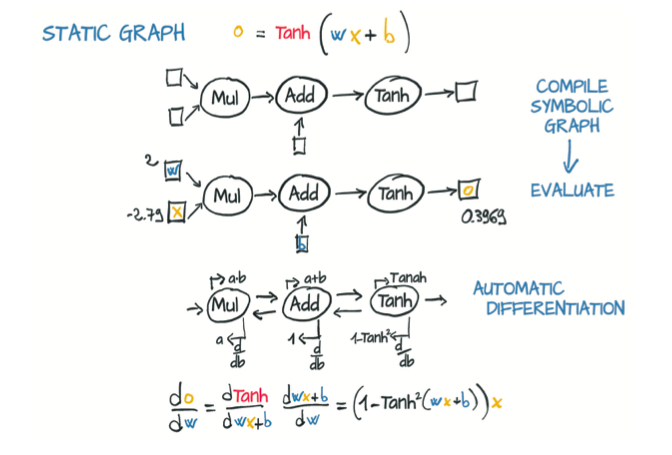 STATIC GRAPH o = Tanh (wx+b)
Mul Add Tanh
COMPILE
SYMBOLIC
GRAPH
2 w
-2.79 x Mul Add Tanh o
0.3969
b
EVALUATE
a·b a+b Tanah
Mul Add Tanh
a d/db 1 d/db 1-Tanh² d/db
AUTOMATIC
DIFFERENTIATION
do/dw = dTanh/dwx+b dwx+b/dw = (1-Tanh²(wx+b))x